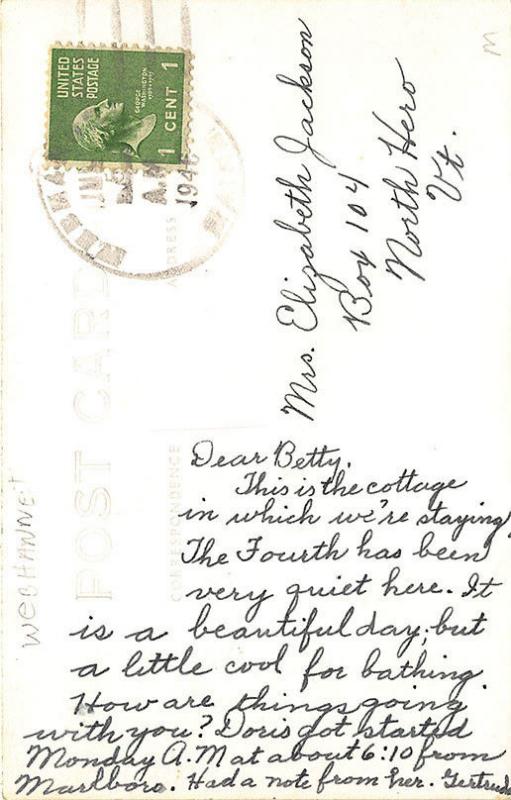 UNITED
STATES
POSTAGE
GEORGE
WASHINGTON
1 CENT 1
A.M
1946
M
POST CARD
ADDRESS
CORRESPONDENCE
WEBHANNET
Mrs. Elizabeth Jackson
Box 104
North Hero
Vt.
Dear Betty,
This is the cottage
in which we're staying.
The Fourth has been
very quiet here. It
is a beautiful day, but
a little cool for bathing.
How are things going
with you? Doris got started
Monday A.M at about 6:10 from
Marlboro. Had a note from her. Gertrude